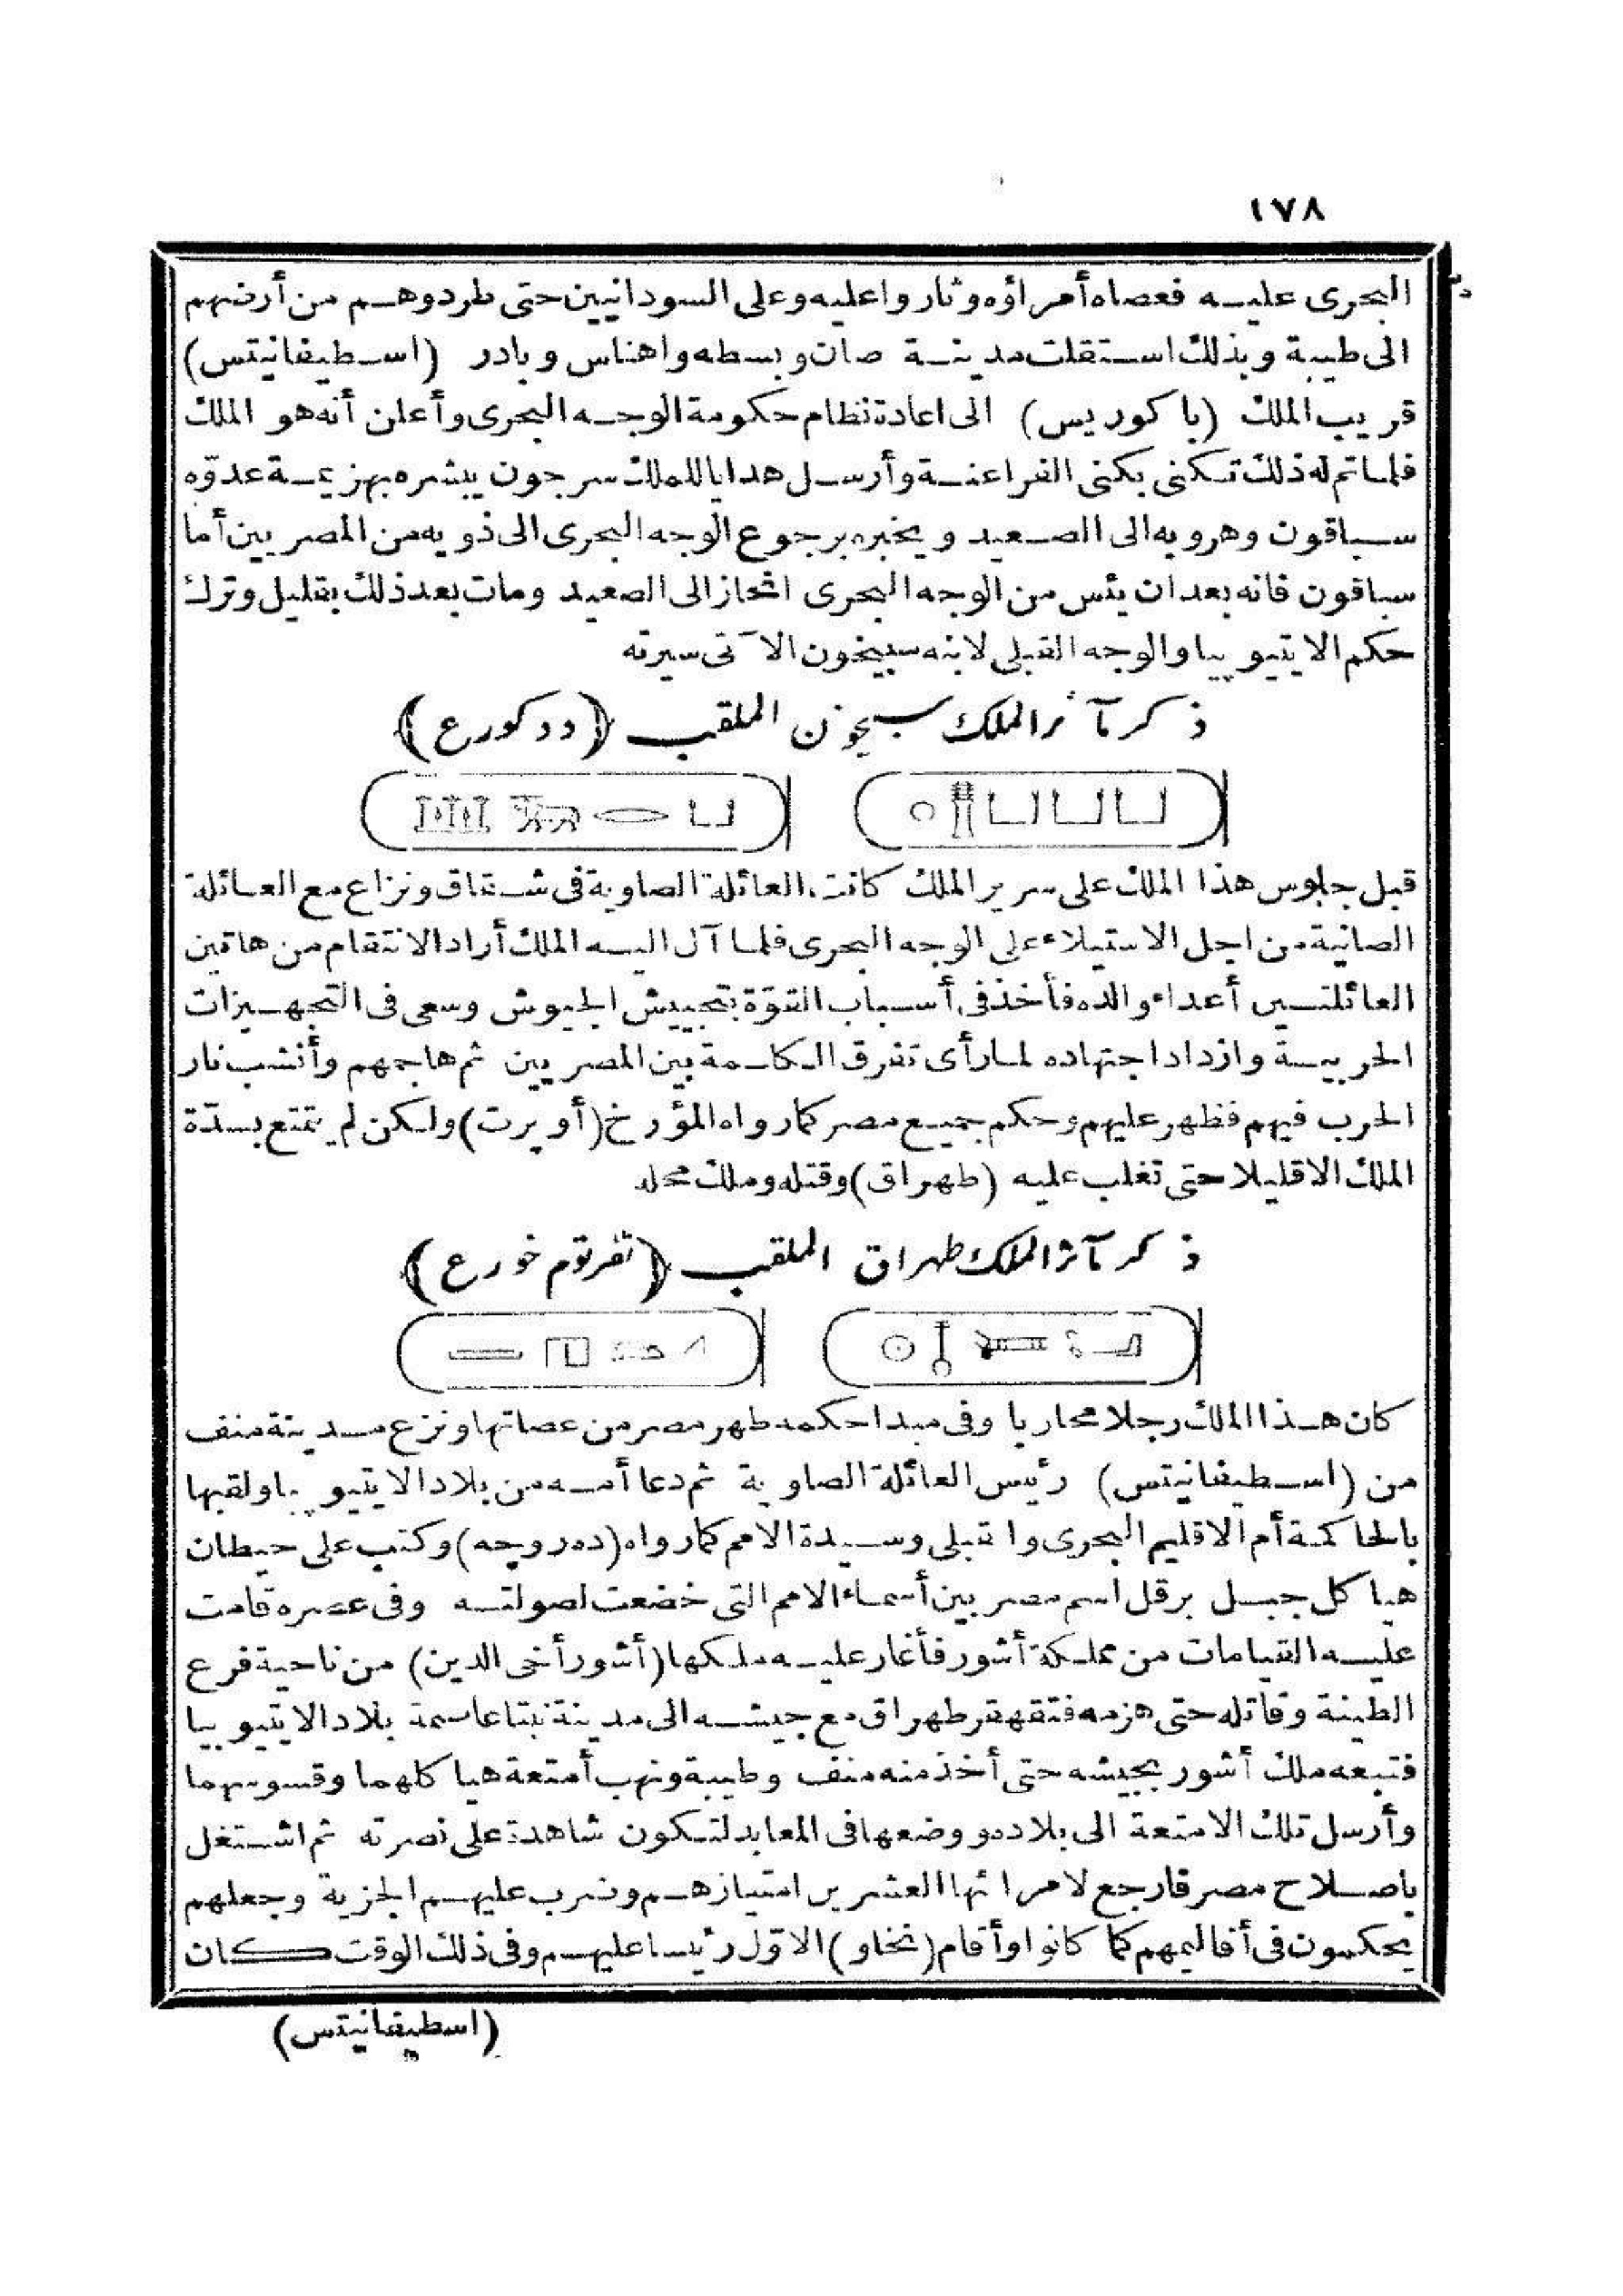 ١٧٨
البحرى عليه فعصاه أمراؤه وثاروا عليه وعلى السودانيين حتى طردوهم من أرضهم
الى طيبة وبذلك استقلت مدينة صان وبسطه واهناس وبادر (اسطيفانيتس)
قريب الملك (باكوريس) الى اعادة نظام حكومة الوجه البحرى وأعلن أنه هو الملك
فلما تم له ذلك تكنى بكنى الفراعنة وأرسل هدايا للملك سرجون يبشره بهزيمة عدوّه
سباقون وهروبه الى الصعيد ويخبره برجوع الوجه البحرى الى ذويه من المصريين أما
سباقون فانه بعد ان يئس من الوجه البحرى انحاز الى الصعيد ومات بعد ذلك بقليل وترك
حكم الايتيوبيا والوجه القبلى لابنه سبيخون الآتى سيرته
ذكر مآثر الملك سبيخون الملقب (ددكورع)
قبل جلوس هذا الملك على سرير الملك كانت العائلة الصاوية فى شقاق ونزاع مع العائلة
الصانية من اجل الاستيلاء على الوجه البحرى فلما آل اليه الملك أراد الانتقام من هاتين
العائلتين أعداء والده فأخذ فى أسباب القوّة بتجييش الجيوش وسعى فى التجهيزات
الحربية وازداد اجتهاده لما رأى تفرق الكلمة بين المصريين ثم هاجمهم وأنشب نار
الحرب فيهم فظهر عليهم وحكم جميع مصر كما رواه المؤرخ (أوبرت) ولكن لم يتمتع بسدّة
الملك الا قليلا حتى تغلب عليه (طهراق) وقتله وملك محله
ذكر مآثر الملك طهراق الملقب (نفرتوم خورع)
كان هذا الملك رجلا محاربا وفى مبدا حكمه طهر مصر من عصاتها ونزع مدينة منف
من (اسطيفانيتس) رئيس العائلة الصاوية ثم دعا أمه من بلاد الايتيوبيا ولقبها
بالحاكمة أم الاقليم البحرى والقبلى وسيدة الامم كما رواه (ده روجه) وكتب على حيطان
هياكل جبل برقل اسم مصر بين أسماء الامم التى خضعت لصولته وفى عصره قامت
عليه القيامات من مملكة أشور فأغار عليه ملكها (أشور أخى الدين) من ناحية فرع
الطينة وقاتله حتى هزمه فتقهقر طهراق مع جيشه الى مدينة نبتا عاصمة بلاد الايتيوبيا
فتبعه ملك أشور بجيشه حتى أخذ منه منف وطيبة ونهب أمتعة هياكلهما وقسوسهما
وأرسل تلك الامتعة الى بلاده ووضعها فى المعابد لتكون شاهدة على نصرته ثم اشتغل
باصلاح مصر فارجع لامرائها العشرين امتيازهم وضرب عليهم الجزية وجعلهم
يحكمون فى أقاليمهم كما كانوا وأقام (نخاو) الاوّل رئيسا عليهم وفى ذلك الوقت كان
(اسطيفانيتس)